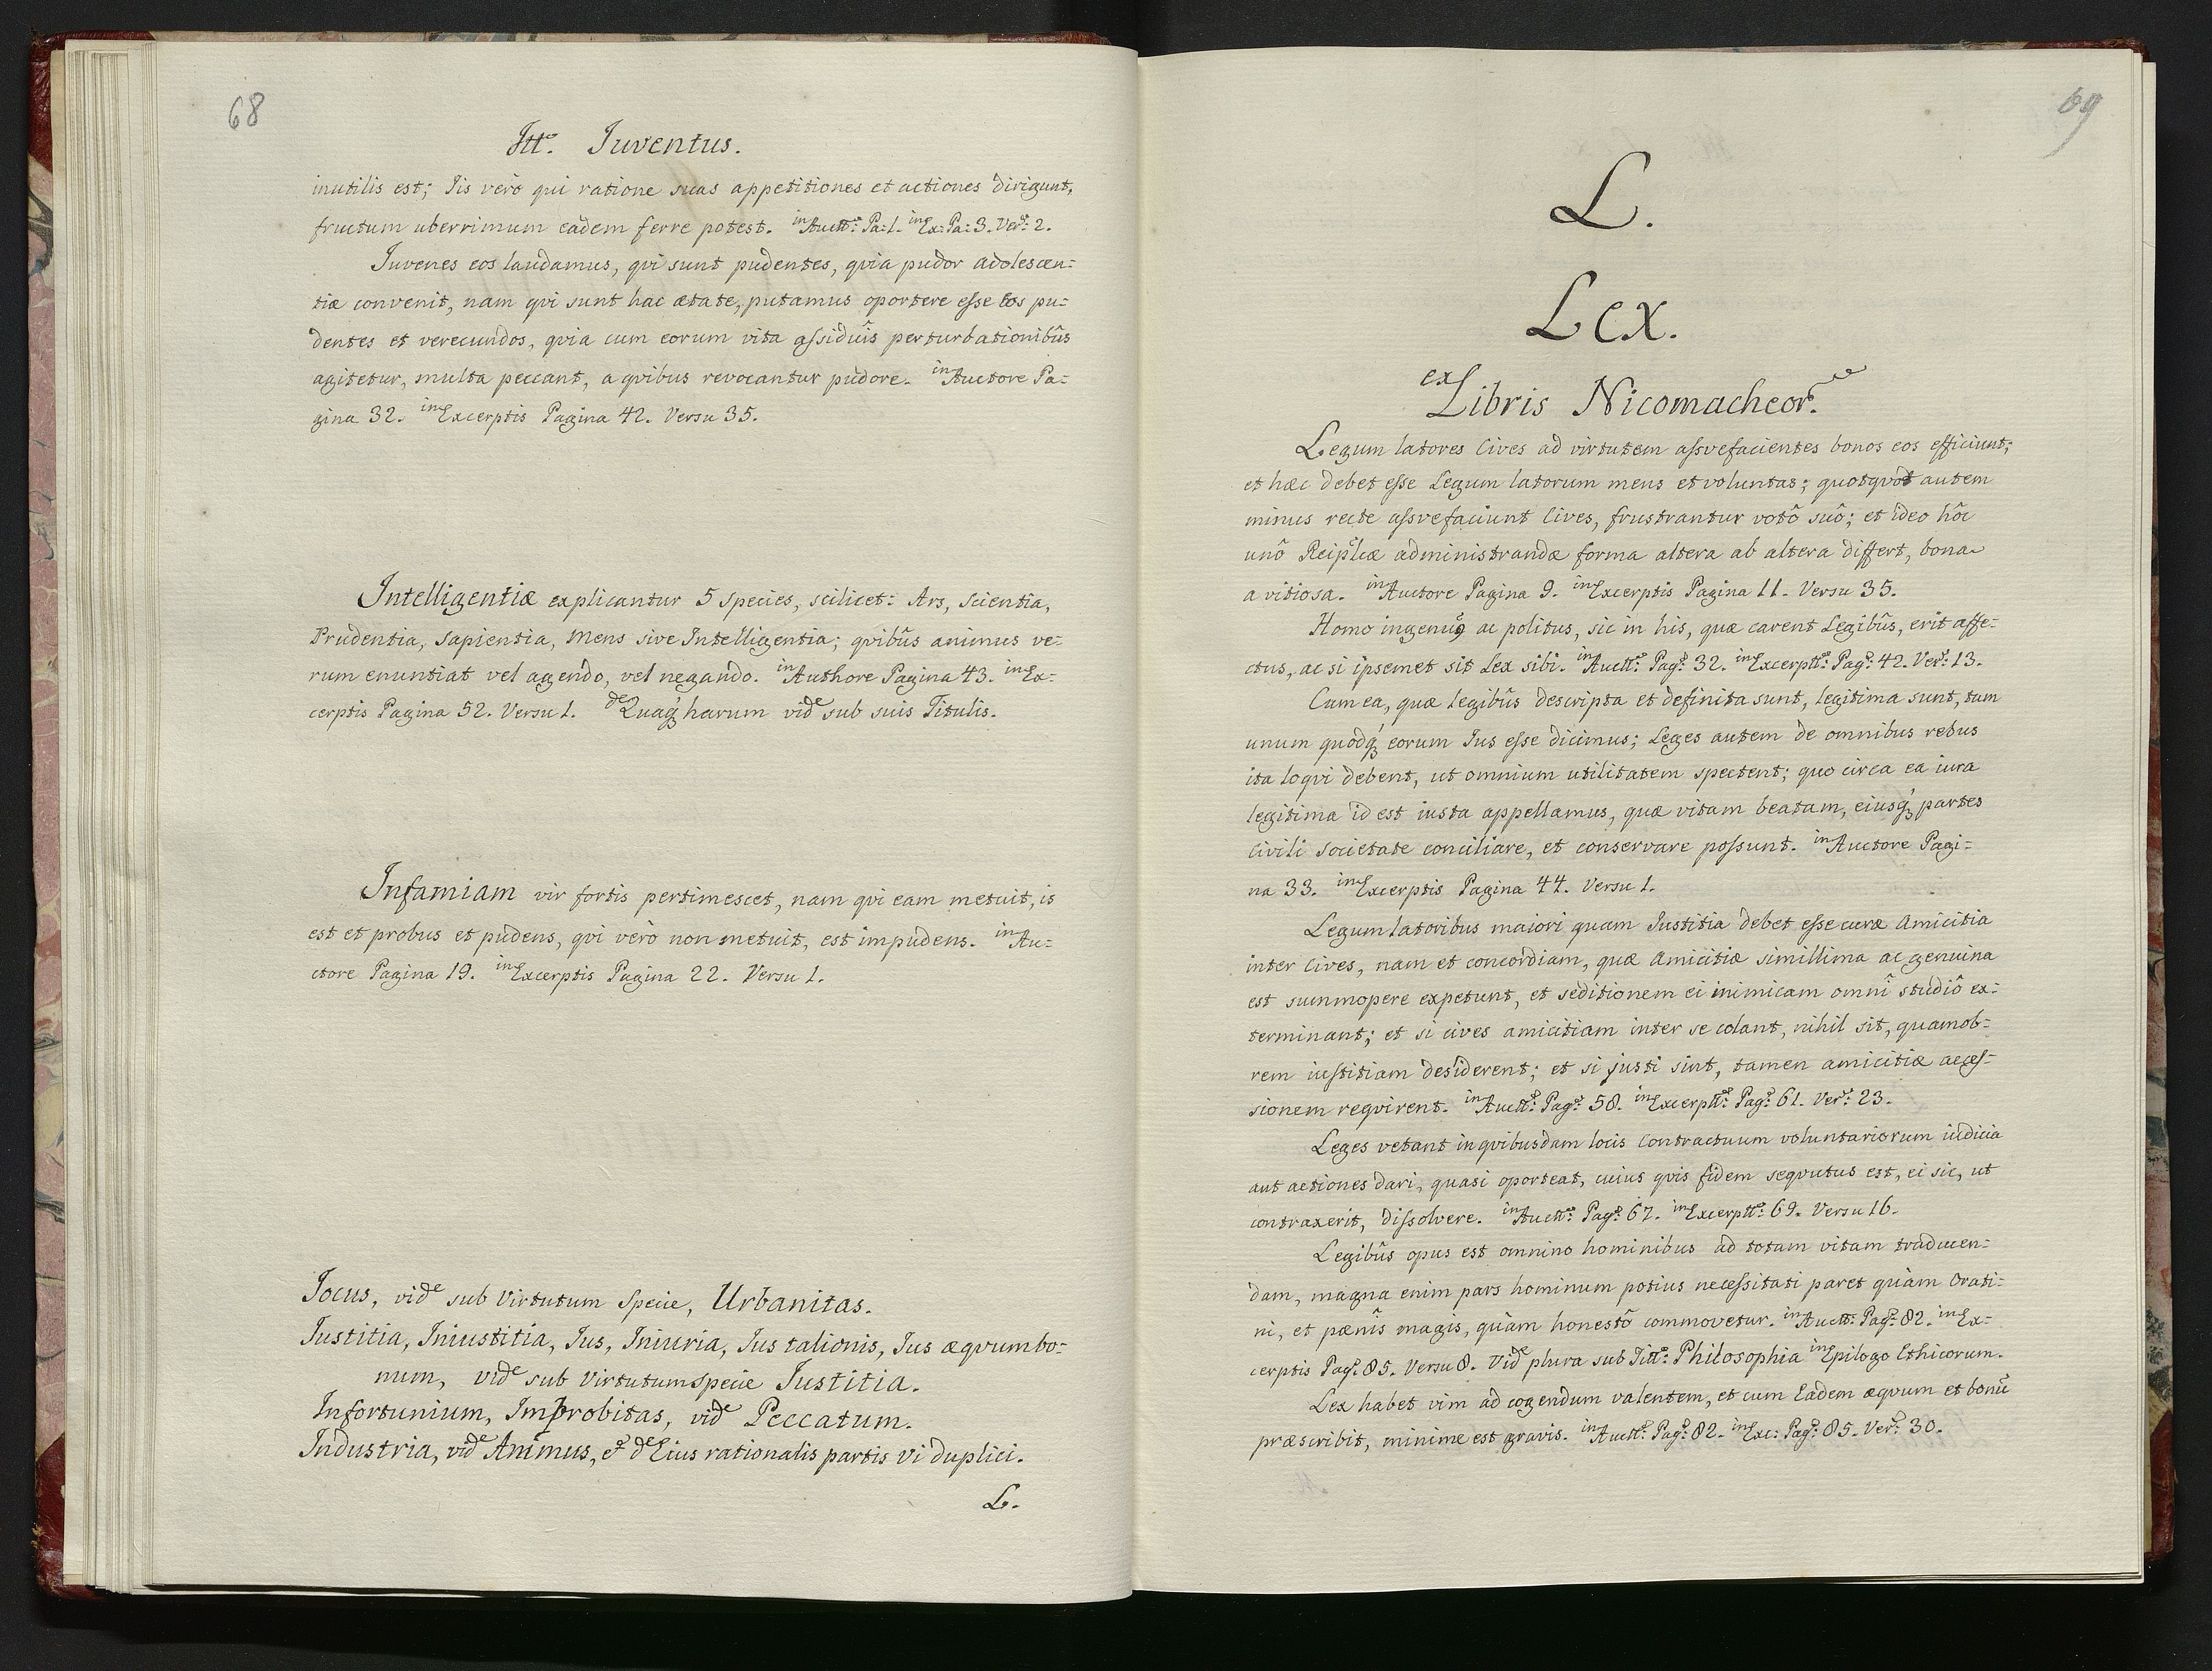 68
Itt.e Iuventus.
inutilis est; Iis verò qui ratione suas appetitiones et actiones dirigunt,
fructum uberrimum eadem ferre potest. in Auctt.e: Pa: 1. in Ex: Pa: 3. Ver.s: 2.
Iuvenes eos laudamus, qvi sunt pudentes, qvia pudor adolescen=
tiæ convenit, nam qvi sunt hac ætate, putamus oportere eſse eos pu=
dentes et verecundos, qvia cum eorum vita aſsiduîs perturbationibûs
agitetur, multa peccant, a qvibus revocantur pudore. in Auctore Pa=
gina 32. in Excerptis Pagina 42. Versu 35.
Intelligentiæ explicantur 5 species, scilicet: Ars, Scientia,
Prudentia, Sapientia, Mens sive Intelligentia; qvibûs animus ve=
rum enuntiat vel agendo, vel negando. in Authore Pagina 43. in Ex=
cerptis Pagina 52. Versu 1. de Quaq́ harum vide sub suis Titulis.
Infamiam vir fortis pertimescet, nam qvi eam metuit, is
est et probus et pudens, qvi verò non metuit, est impudens. in Au=
ctore Pagina 19. in Excerptis Pagina 22. Versu 1.
Jocus, vide sub Virtutum Specie, Urbanitas.
Iustitia, Iniustitia, Ius, Iniuria, Ius talionis, Ius æqvum bo=
num, vide sub Virtutum specie Iustitia.
Infortunium, Improbitas, vide Peccatum.
Industria, vide Animus, et de Eius rationalis partis vi duplici.
L.
69
L.
Lex.
ex Libris Nicomacheor.
Legum latores Cives ad virtutem aſsvefacientes bonos eos efficiunt;
et hæc debet eſse Legum latorum mens et voluntas; quotqvot autem
minus recte aſsvefaciunt Cives, frustrantur votô suô; et ideo hôc
unô Reip̃licæ administrandæ forma altera ab altera differt, bona
a vitiosa. in Auctore Pagina 9. in Excerptis Pagina 11. Versu 35.
Homo ingenuꝰ ac politus, sic in his, quæ carent Legibûs, erit affe=
ctus, ac si ipsemet sit Lex sibi. in Auctt.e: Pag.a: 32. in Excerptt.s: Pag.a: 42. Ver.s: 13.
Cum ea, quæ legibûs descripta et definita sunt, legitima sunt, tum
unum quodq́ eorum Ius eſse dicimus; Leges autem de omnibus rebus
ita loqvi debent, ut omnium utilitatem spectent; quo circa ea iura
legitima id est iusta appellamus, quæ vitam beatam, eiusq́ partes
Civili Societate conciliare, et conservare poſsunt. in Auctore Pagi=
na 33. in Excerptis Pagina 44. Versu 1.
Legumlatoribus maiori quam Iustitia debet eſse curæ Amicitia
inter Cives, nam et concordiam, quæ Amicitiæ simillima ac genuina
est summopere expetunt, et seditionem ei inimicam omnî studiô ex=
terminant; et si cives amicitiam inter se colant, nihil sit, quamob=
rem iustitiam desiderent; et si justi sint, tamen amicitiæ acceſ=
sionem reqvirent. in Auctt.e: Pag.a: 58. in Excerptt.s: Pag.a: 61. Ver.s: 23.
Leges vetant in qvibusdam locis Contractuum voluntariorum iudicia
aut actiones dari, quasi oporteat, cuius qvis fidem seqvutus est, ei sic, ut
contraxerit, diſsolvere. in Auctt.e: Pag.a: 67. in Excerptt.s: 69. Versu 16.
Legibûs opus est omnino hominibus ad totam vitam traducen=
dam, magna enim pars hominum potius neceſsitati paret quàm Orati=
ni, et pænîs magis, quàm honestô commovetur. in Auctt: Pag.a: 82. in Ex=
cerptis Pag.a: 85. Versu 8. Vide plura sub Titt.o: Philosophia in Epilogo Ethicorum.
Lex habet vim ad cogendum valentem, et cum Eadem æqvum et bonũ
præscribit, minime est gravis. in Auctt.e: Pag.a: 82. in Exc: Pag.a: 85. Ver.s: 30.